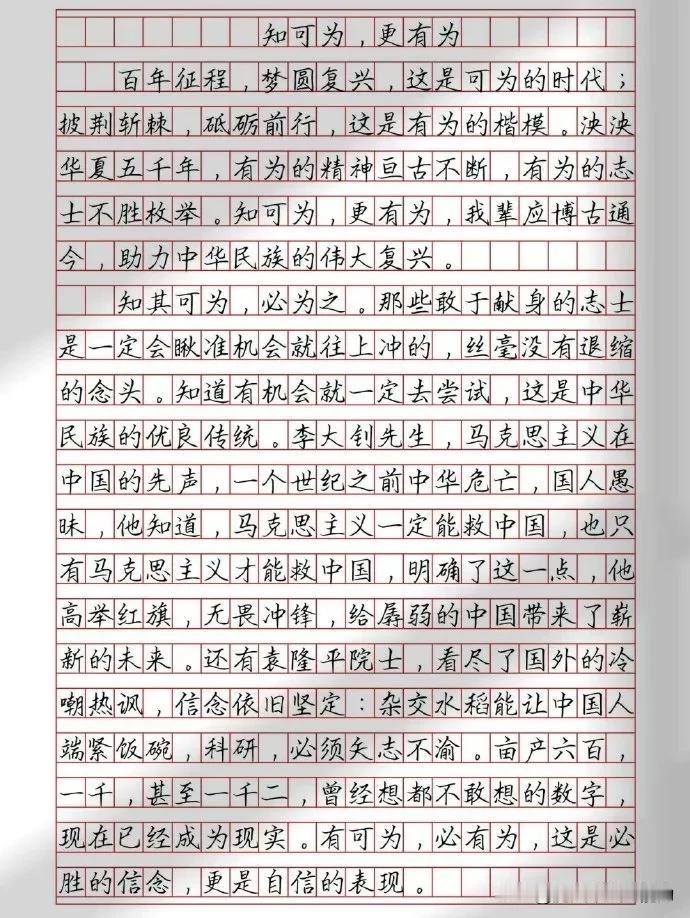 知可为，更有为
百年征程，梦圆复兴，这是可为的时代；
披荆斩棘，砥砺前行，这是有为的楷模。泱泱
华夏五千年，有为的精神亘古不断，有为的志
士不胜枚举。知可为，更有为，我辈应博古通
今，助力中华民族的伟大复兴。
知其可为，必为之。那些敢于献身的志士
是一定会瞅准机会就往上冲的，丝毫没有退缩
的念头。知道有机会就一定去尝试，这是中华
民族的优良传统。李大钊先生，马克思主义在
中国的先声，一个世纪之前中华危亡，国人愚
昧，他知道，马克思主义一定能救中国，也只
有马克思主义才能救中国，明确了这一点，他
高举红旗，无畏冲锋，给孱弱的中国带来了崭
新的未来。还有袁隆平院士，看尽了国外的冷
嘲热讽，信念依旧坚定：杂交水稻能让中国人
端紧饭碗，科研，必须矢志不渝。亩产六百，
一千，甚至一千二，曾经想都不敢想的数字，
现在已经成为现实。有可为，必有为，这是必
胜的信念，更是自信的表现。